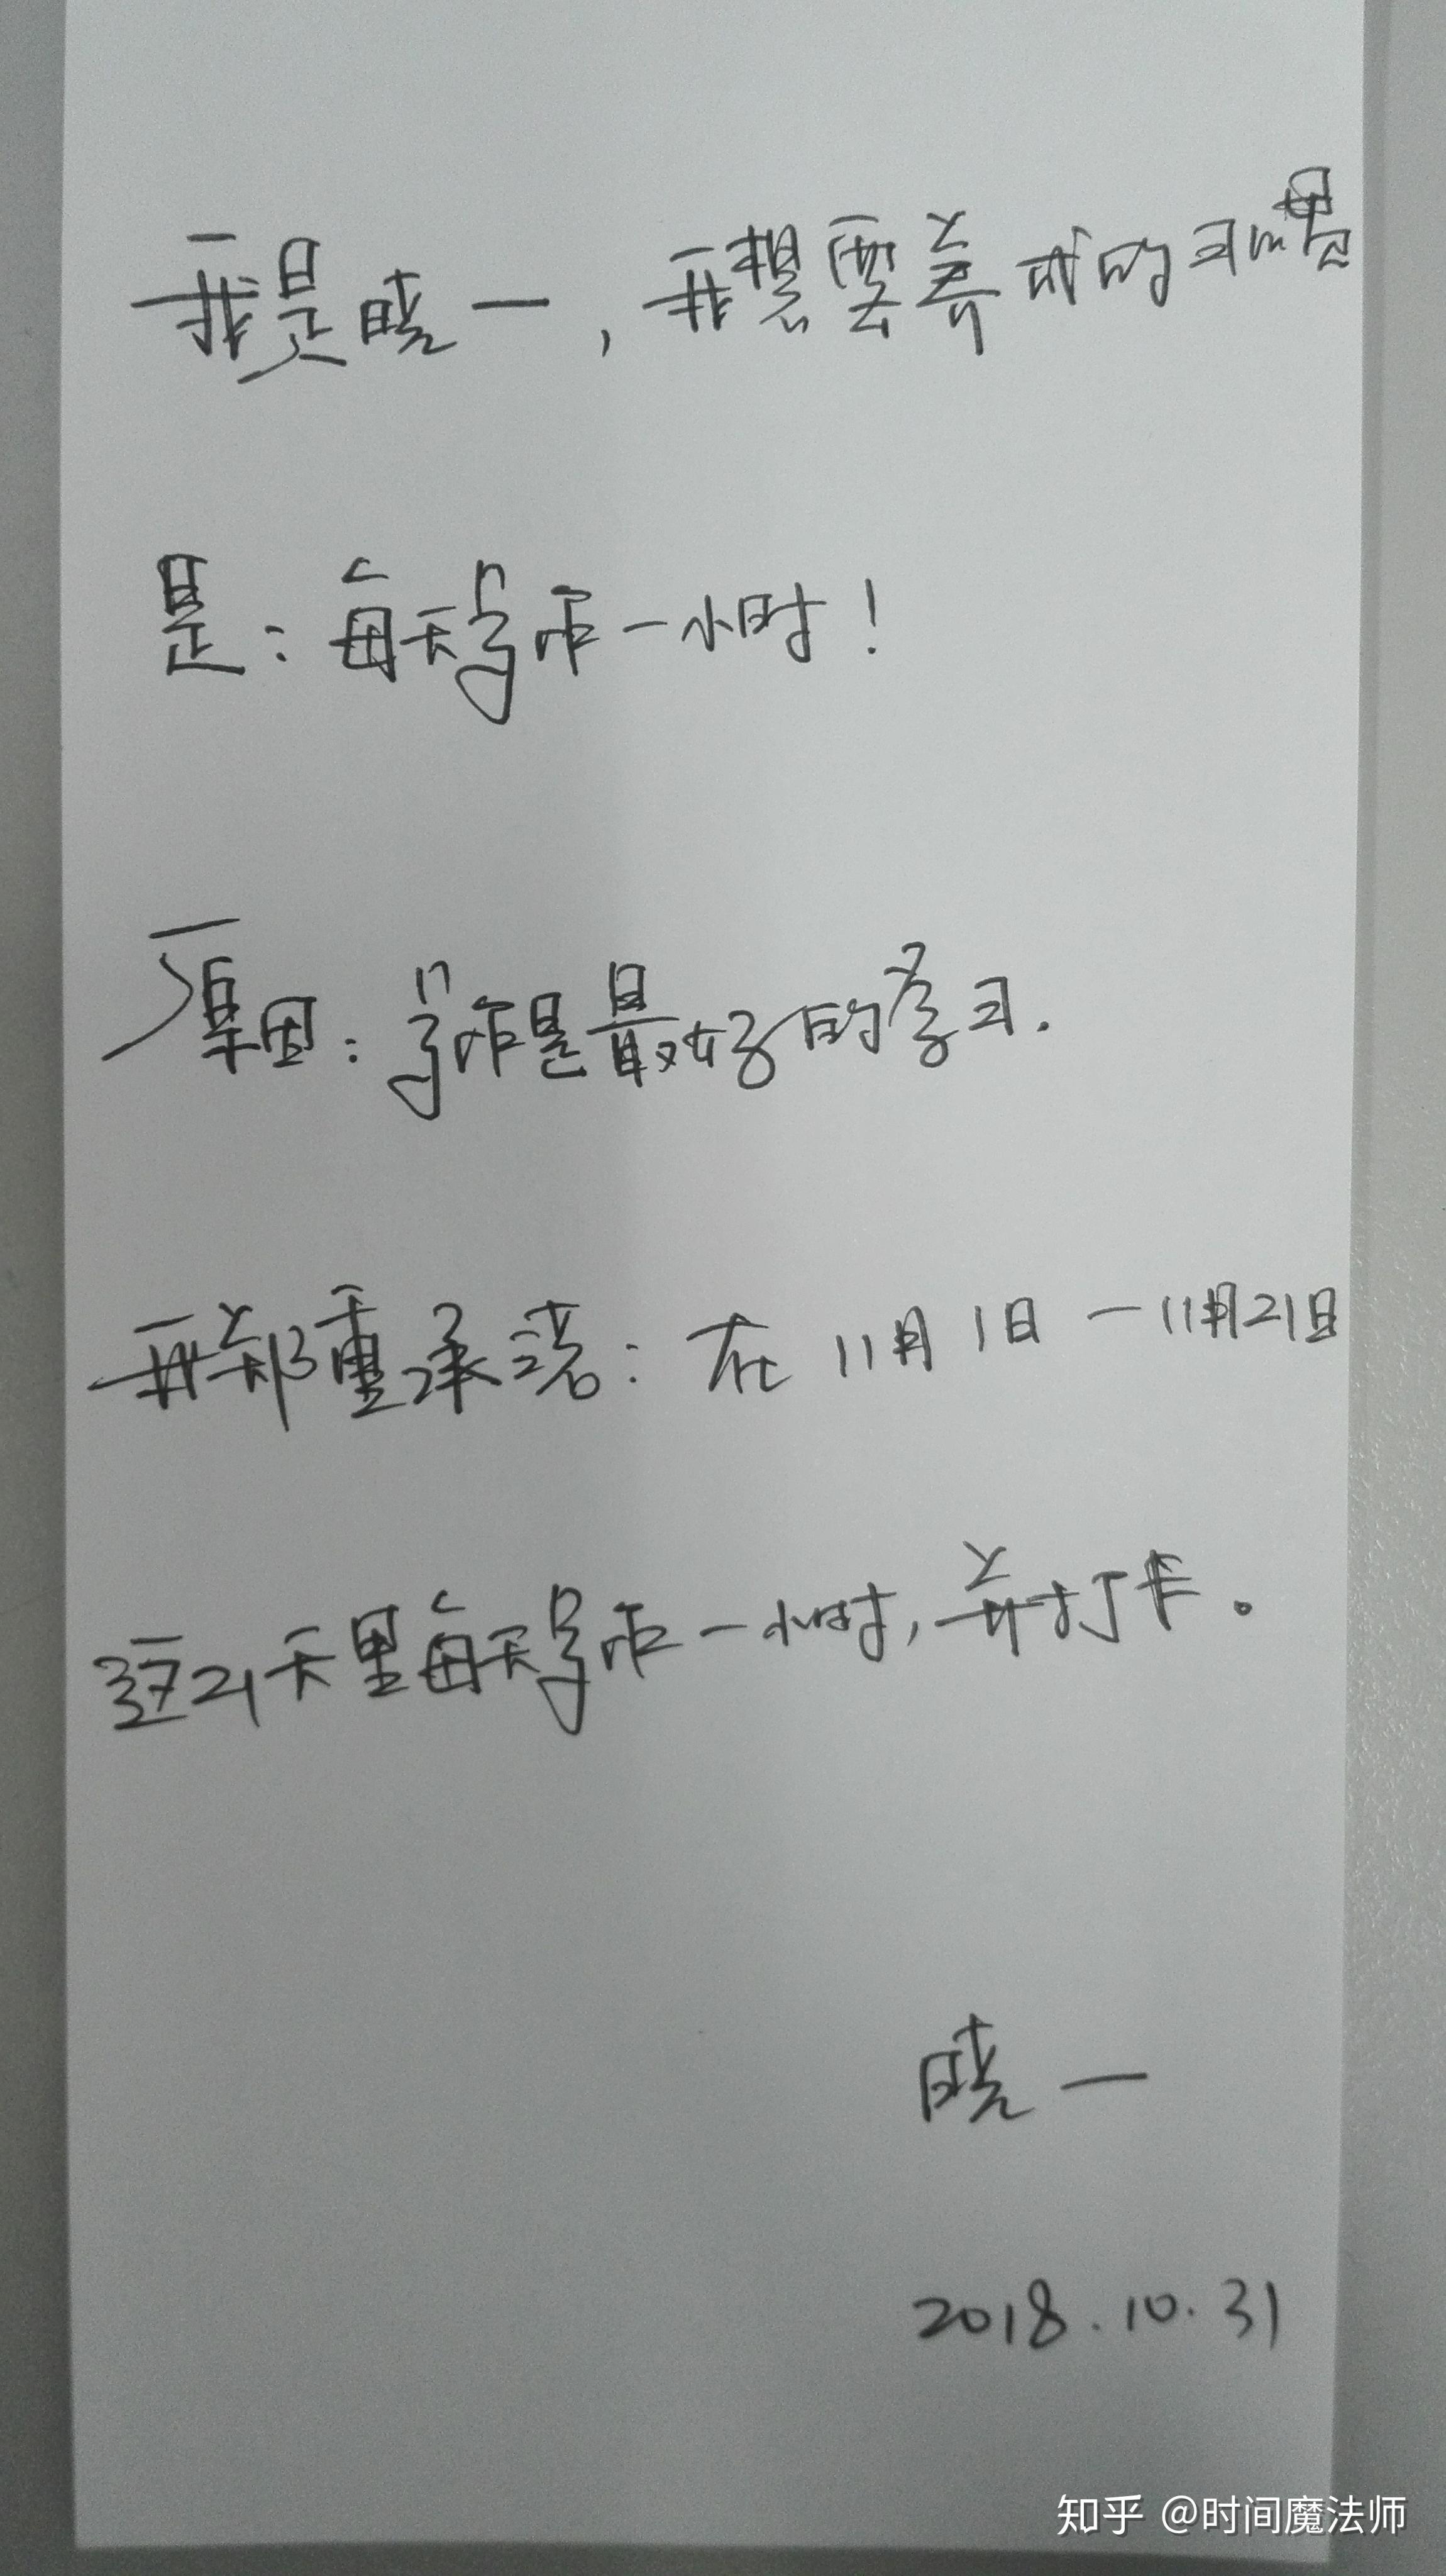 我是晓一，我想要养成的习惯
是：每天写作一小时！
原因：写作是最好的学习.
我郑重承诺：在11月1日一11月21日
这21天里每天写作一小时,并打卡。
晓一
2018.10.31
知乎 @时间魔法师